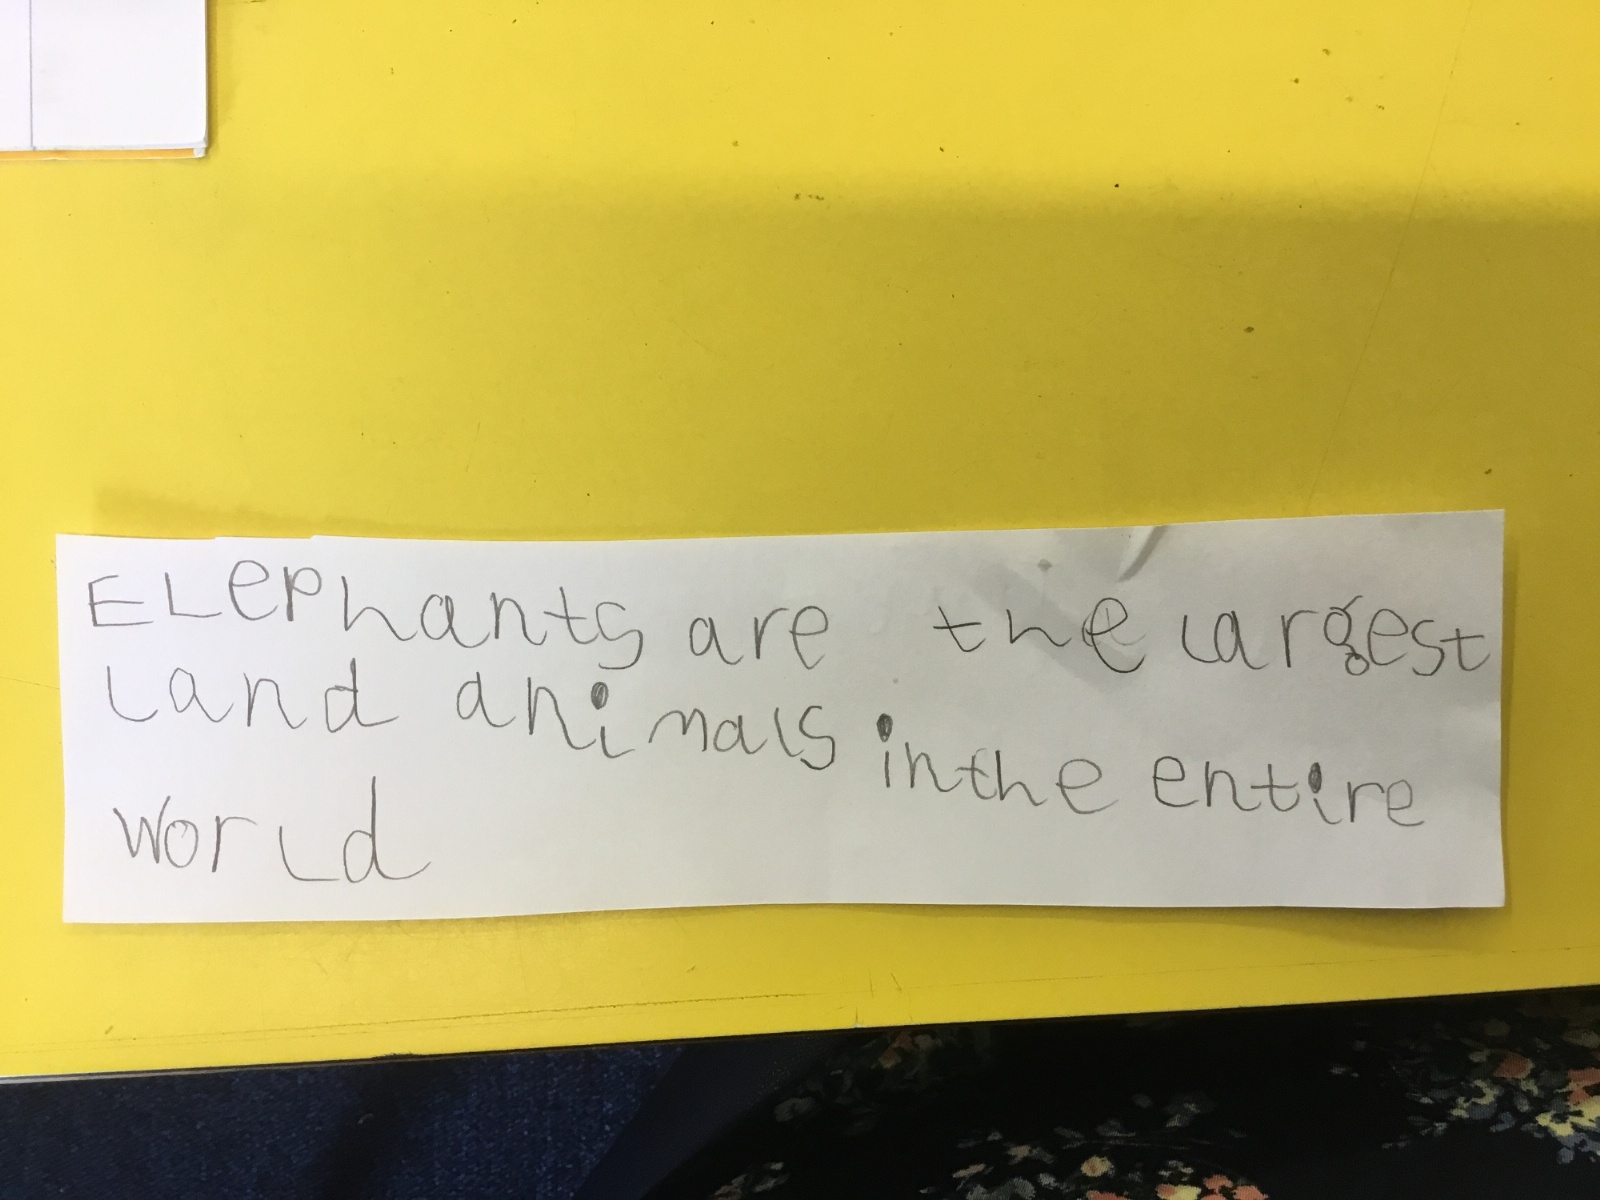 ELephants are the largest
Land animals in the entire
World